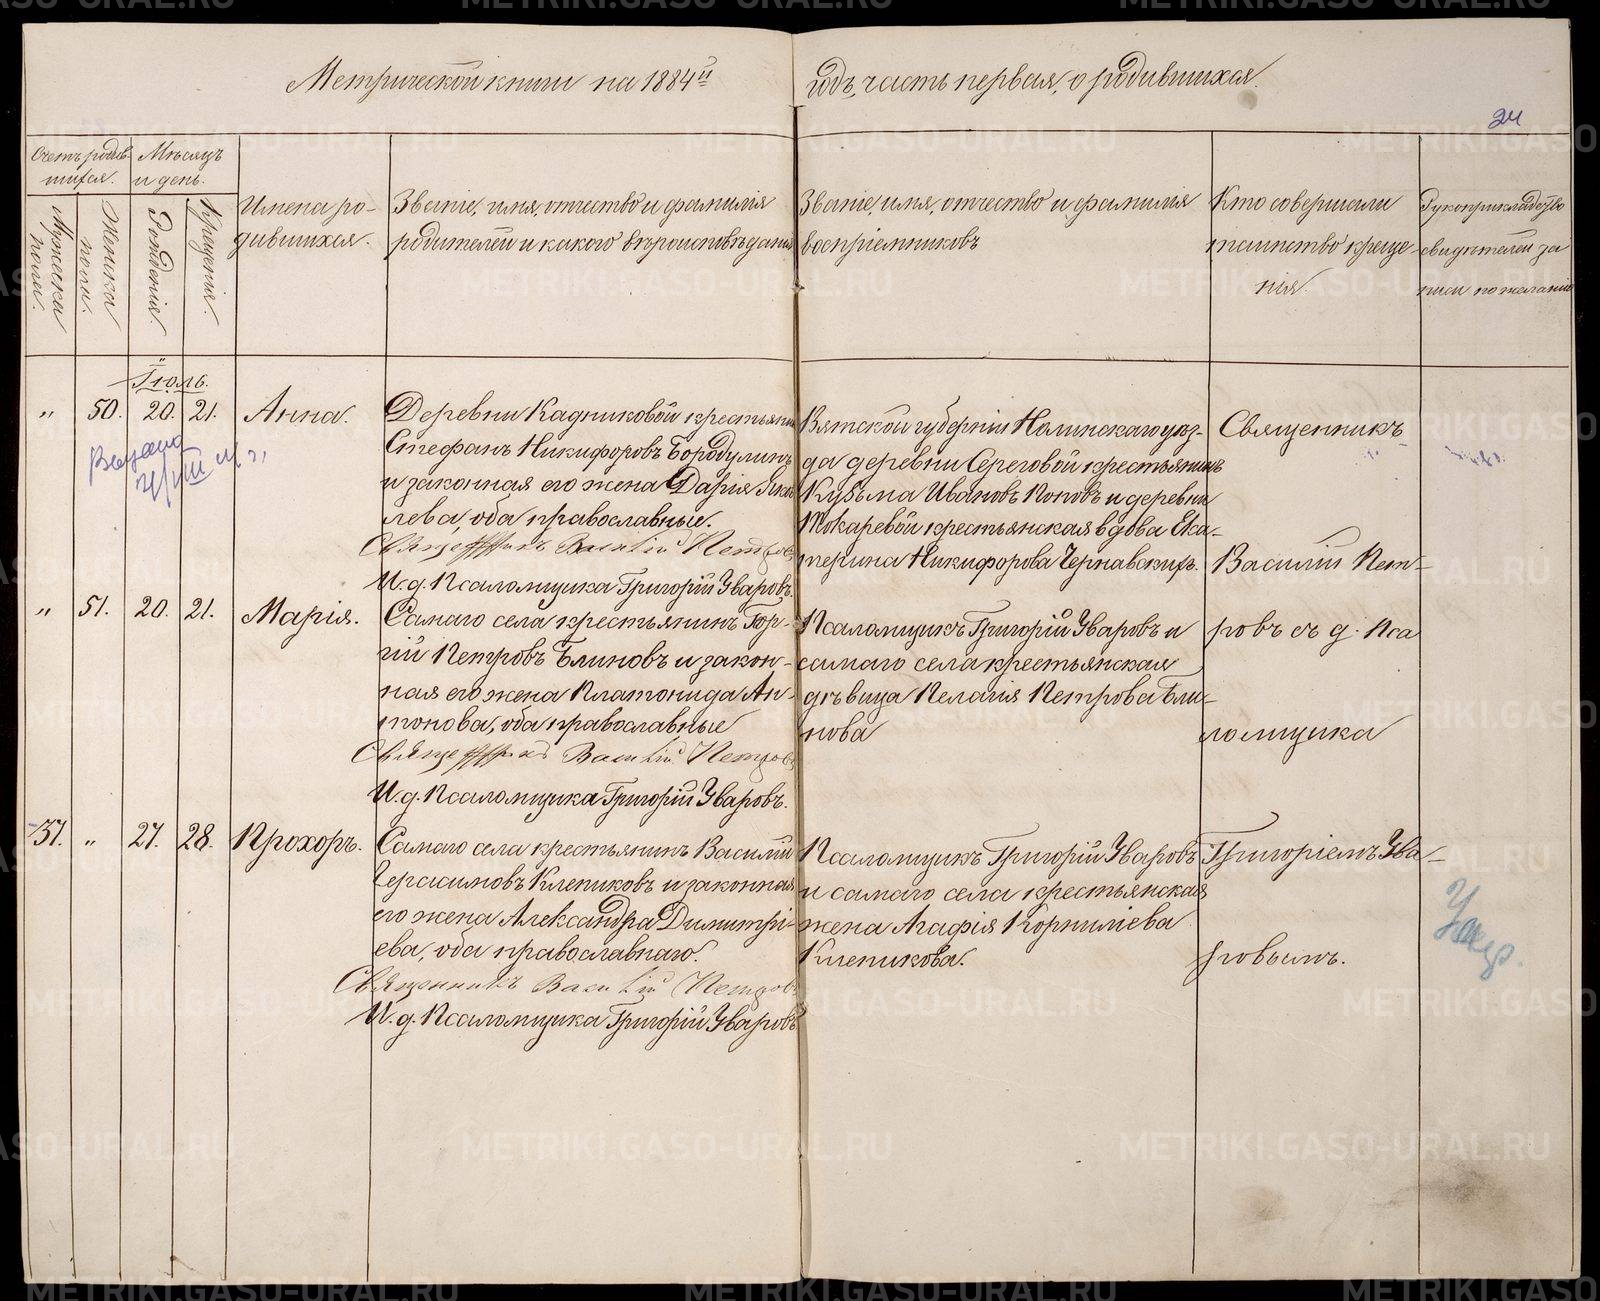 Метрической книги на 1884й годъ, часть первая, о родившихся.
24
Счетъ родив-
шихся.
Мѣсяцъ
и день.
Мужеска
пола.
Женска
пола.
Рожденія.
Крещенія.
Имена ро-
дившихся.
Званіе, имя, отчество и фамилія
родителей и какого вѣроисповѣданія
Званіе, имя, отчество и фамилія
воспріемниковъ
Кто совершали
таинство креще-
нія.
Рукоприкладство
свидѣтелей за
писи по желанію
Іюль.
" 50. 20. 21. Анна.
Выдано
Деревни Кадниковой крестьянинъ
Стефанъ Никифоровъ Бородулинъ
и законная его жена Дарія Яков
лева, оба православные.
Священникъ Василій Петровъ
И. д. Псаломщика Григорій Уваровъ.
Вятской губерніи Нолинскаго уѣз-
да деревни Сереговой крестьянинъ
Кузьма Ивановъ Поповъ и деревни
Токаревой крестьянская вдова Ека-
терина Никифорова Чернавскихъ.
Священникъ
Василій Пет-
" 51. 20. 21. Марія.
Самаго села крестьянинъ Геор-
гій Петровъ Блиновъ и закон-
ная его жена Платонида Ан-
тонова, оба православные
Священникъ Василій Петровъ
И. д. Псаломщика Григорій Уваровъ.
Псаломщикъ Григорій Уваровъ и
самаго села крестьянская
дѣвица Пелагія Петрова Бли-
нова
ровъ съ д. Пса
ломщика
51. " 27. 28. Прохоръ.
Самаго села крестьянинъ Василій
Герасимовъ Клепиковъ и законная
его жена Александра Димитрі-
ева, оба православнаго.
Священникъ Василій Петровъ
И. д. Псаломщика Григорій Уваровъ
Псаломщикъ Григорій Уваровъ
и самаго села крестьянская
жена Агафія Корниліева
Клепикова.
Григоріемъ Ува-
ровымъ.
METRIKI.GASO-URAL.RU